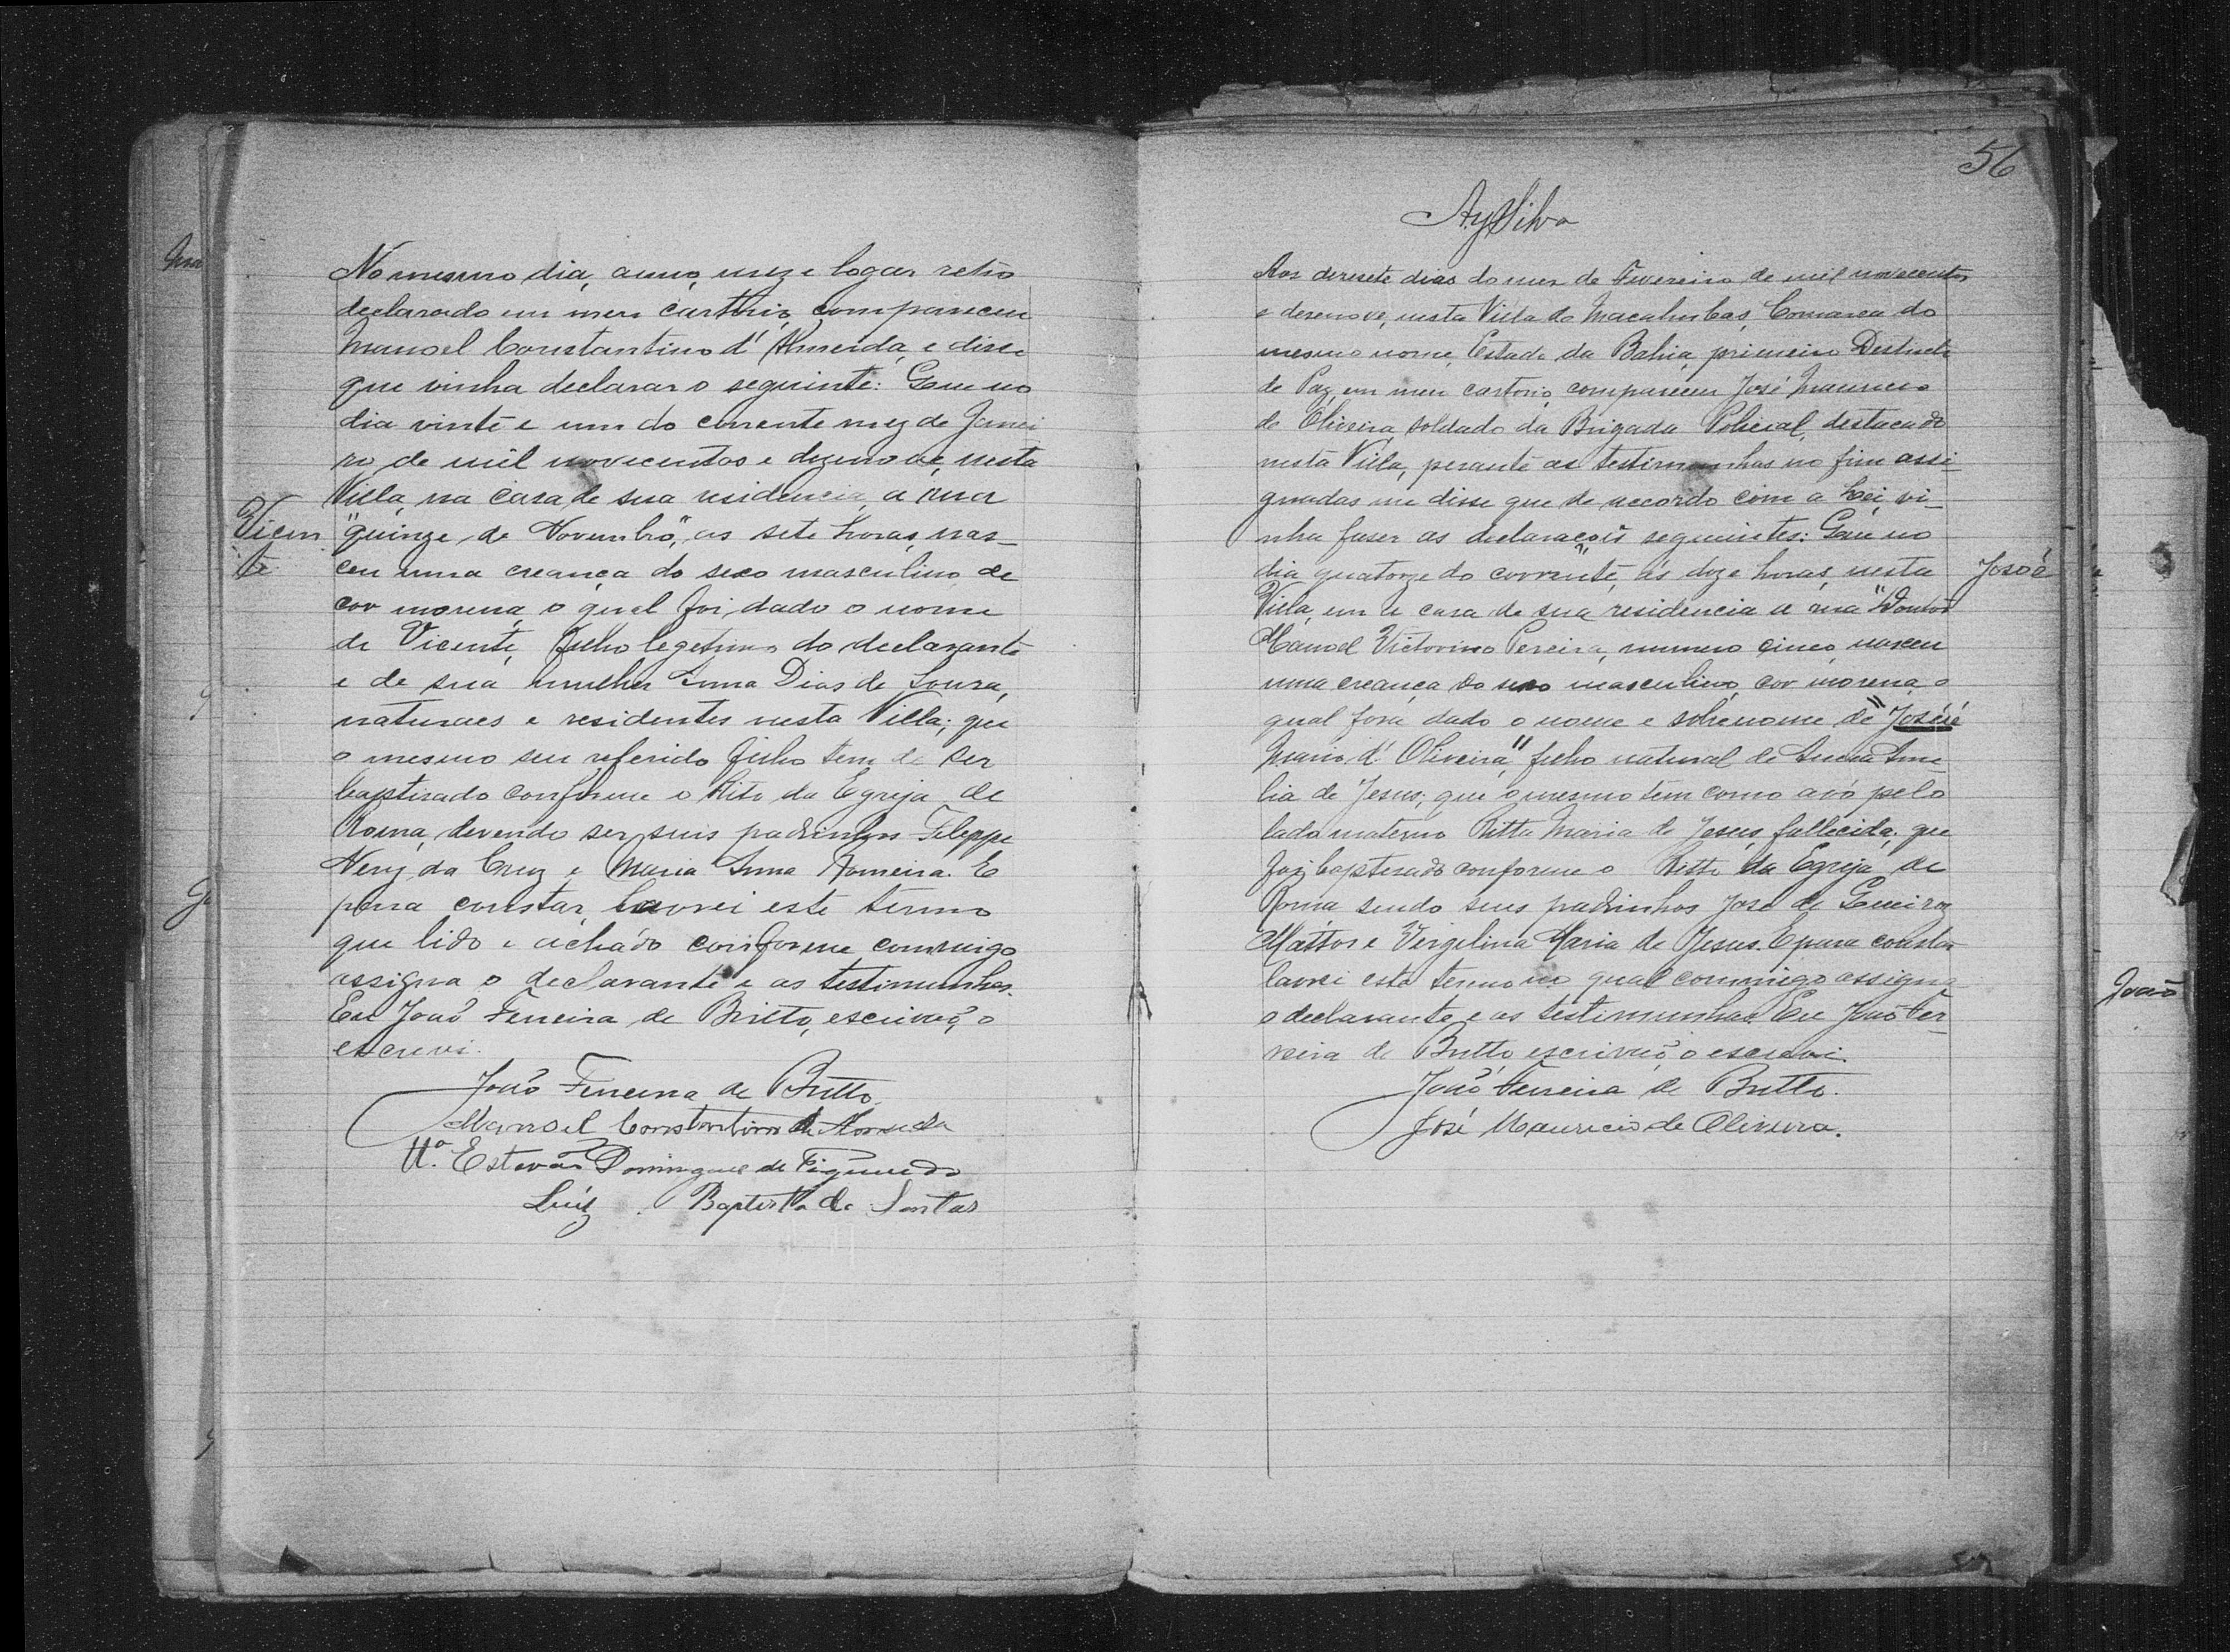 No mesmo dia, anno, mez e logar retro
declarado em meu carthrio, compareceu
Manoel Constantino d'Almeida, e disse
que vinha declarar o seguinte: Que no
dia vinte e um do corrente mez de Janei
ro de mil novecentos e dezenove, nesta
Villa, na casa de sua residencia, a rua
"quinze de Novembro", as sete horas, nas_
ceu uma creança do sexo masculino de
cor morena, o qual foi dado o nome
de Vicente, filho legetimo do declarante
e de sua mulher Anna Dias de Souza,
naturaes e residentes nesta Villa; que
o mesmo seu referido filho tem de ser
baptisado conforme o Rito da Egreja de
Roma, devendo ser seus padrinhos Fileppe
Nery da Cruz e Maria Anna Romeira. E
para constar, lavrei este termo
que lido e achado conforme commigo
assigna o declarante e as testimunhas.
Eu João Ferreira de Britto, escrivão, o
escrevi.
João Ferreira de Britto.
Manoel Constantino de Almeida
Estevão Domingues de Figueredo
Luiz Baptista de Santas
Vicen
te
56
AySilva
Aos desesete dias do mes de Fevereiro de mil novecentos
e desenove, nesta Villa de Macahubas, Comarca do
mesmo nome, Estado da Bahia, primeiro Destricto
de Paz, em meu cartorio, compareceu José Mauricio
de Oliveira, soldado da Brigada Policial, destacado
nesta Villa, perante as testimunhas no fim assi_
gnadas me disse que de accordo com a Lei, vi_
nha faser as declarações seguintes: Que no
dia quatorze do corrente, ás doze horas, nesta
Villa, em a casa de sua residencia a rua "Doutor
Manoel Victorino Pereira, numero cinco, nasceu
uma creança do sexo masculino, cor morena, o
qual fora dado o nome e sobrenome de "José
Mario d'Oliveira", filho natural de Ame
lia de Jesus; que o mesmo tem como avó pelo
lado materno Ritta Maria de Jesus, fallecida; que
foi baptisado conforme o Ritto da Egreja de
Roma sendo seus padrinhos José de Queiroz
Mattos e Vergelina Maria de Jesus. E para constar
lavrei este termo no qual commigo assigna
o declarante e as testimunhas. Eu João Fer_
reira de Britto, escrivão, o escrevi.
João Ferreira de Britto.
José Mauricio de Oliveira.
José
João